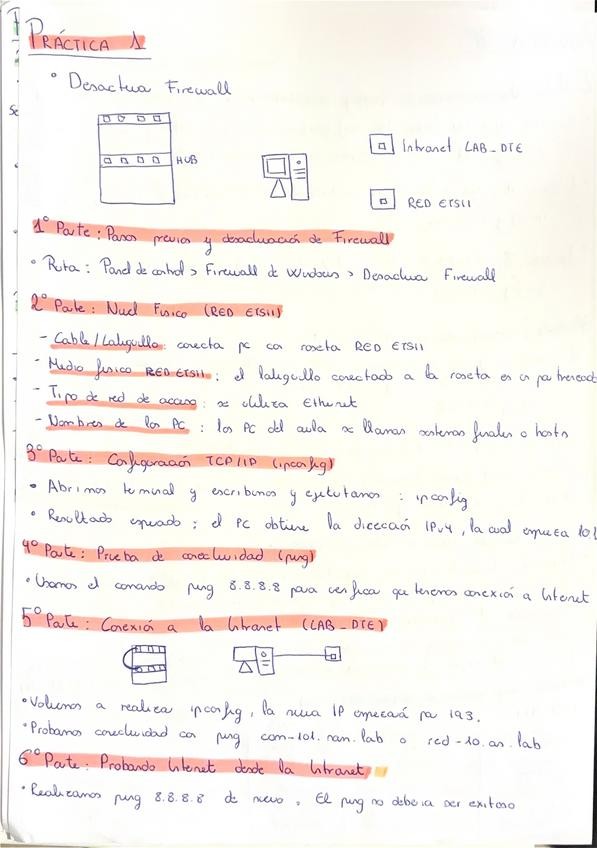 PRÁCTICA 1
° Desactivar Firewall
HUB
Intranet LAB_DTE
RED ETSII
1º Parte: Pasos previos y desactivación de Firewall
• Ruta: Panel de control > Firewall de Windows > Desactivar Firewall
2º Parte: Nivel Físico (RED ETSII)
- Cable/Latiguillo: conecta pc con roseta RED ETSII
- Medio físico RED ETSII: el latiguillo conectado a la roseta es un par trenzado
- Tipo de red de acceso: se utiliza Ethernet
- Nombres de los PC: los PC del aula se llaman sistemas finales o hosts
3º Parte: Configuración TCP/IP (ipconfig)
• Abrimos terminal y escribimos y ejecutamos: ipconfig
• Resultado esperado: el PC obtiene la dirección IPv4, la cual empieza
4º Parte: Prueba de conectividad (ping)
• Usamos el comando ping 8.8.8.8 para verificar que tenemos conexión a Internet
5º Parte: Conexión a la Intranet (LAB_DTE)
• Volvemos a realizar ipconfig, la nueva IP empezará por 193.
• Probamos conectividad con ping com-101.nan.lab o red-10.an.lab
6º Parte: Probando Internet desde la Intranet
• Realizamos ping 8.8.8.8 de nuevo. El ping no debería ser exitoso